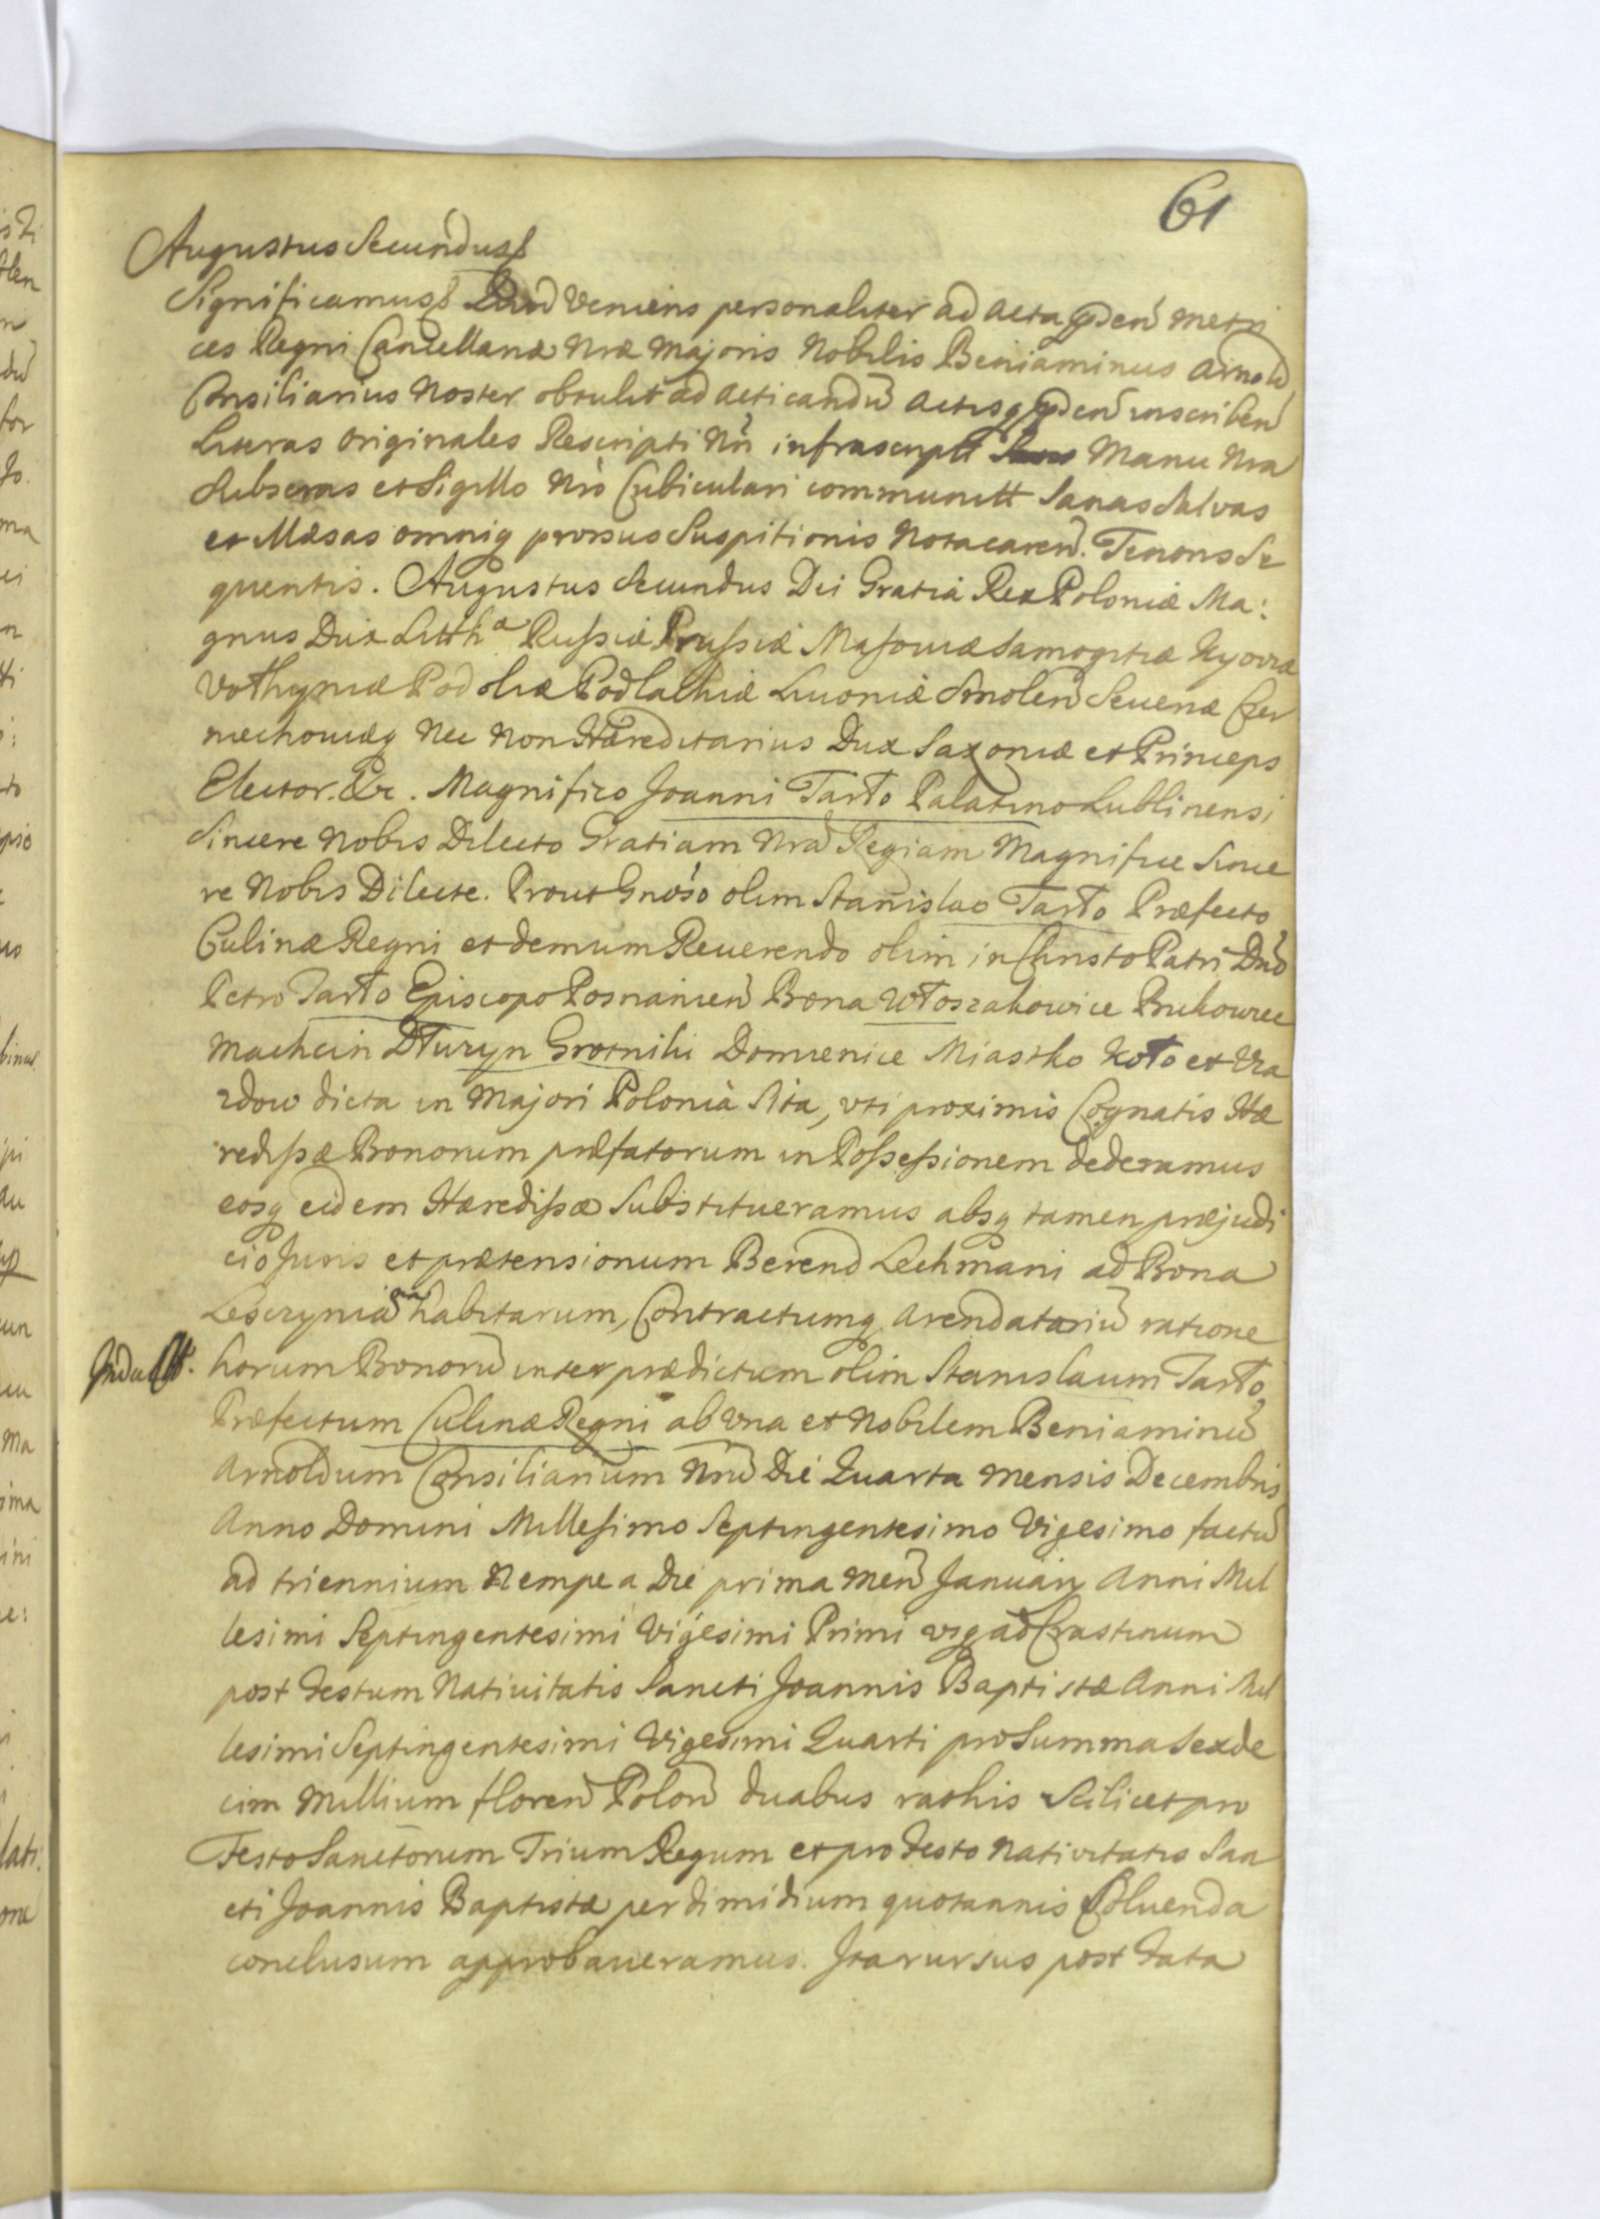 61
Augustus Secundus
Significamus Quod veniens personaliter ad Acta pñden Metri
ces Regni Cancellariæ Nræ Majoris Nobilis Beniaminus Arnold
Consiliarius Noster obtulit ad acticandũ actisq pñden inscriben
Literas originales Rescripti Nri infrascript Manu Nra
Subscras et Sigillo Nrô Cubiculari communitt Sanas Salvas
et Illæsas omniq prorsus Suspitionis Nota caren. Tenoris Se
quentis. Augustus Secundus Dei Gratiâ Rex Poloniæ Ma:
gnus Dux Litthæ Russiæ Prussiæ Masoviæ Samogitiæ Kyoviæ
Vołhyniæ Podoliæ Podlachiæ Livoniæ Smolen Severiæ Czer
niechoviæq Nec Non Hæreditarius Dux Saxoniæ et Princeps
Elector. &c. Magnifico Joanni Tarło Palatino Lublinensi
Sincere Nobis Dilecto Gratiam Nrã Regiam Magnifice Since
re Nobis Dilecte. Prout Gnôso olim Stanislao Tarło Præfecto
Culinæ Regni et demum Reverendo olim in Christo Patri Dnõ
Petro Tarło Episcopo Posnanien Bona Włoszakowice Bukowiec
Machcin Dłużyn Grotniki Domienice Miastko Koło et Via
zdow dicta in Majori Poloniâ Sita, uti proximis Cognatis Hæ
redissæ Bonorum præfatorum in Possessionem dederamus
eosq eidem Hæredissæ Substitueramus absq tamen præjudi
cio Juris et prætensionum Berend Lechmani ad Bona
Leszczyniana habitarum, Contractumq Arendatoriũ ratione
Indult. horum Bonorũ inter prædictum olim Stanislaum Tarło
Præfectum Culinæ Regni ab una et Nobilem Beniaminũ
Arnoldum Consiliarium Nrũ Die Quarta Mensis Decembris
Anno Domini Millesimo Septingentesimo Vigesimo factũ
ad triennium Nempe a Die prima Men Januarij Anni Mil
lesimi Septingentesimi Vigesimi Primi usq ad Crastinum
post Festum Nativitatis Sancti Joannis Baptistæ Anni Mil
lesimi Septingentesimi Vigesimi Quarti pro Summa Sexde
cim Millium floren Polon duabus rathis Scilicet pro
Festo Sanctorum Trium Regum et pro Festo Nativitatis San
cti Joannis Baptistæ per dimidium quotannis Solvenda
conclusum approbaveramus. Ita rursus post Fata